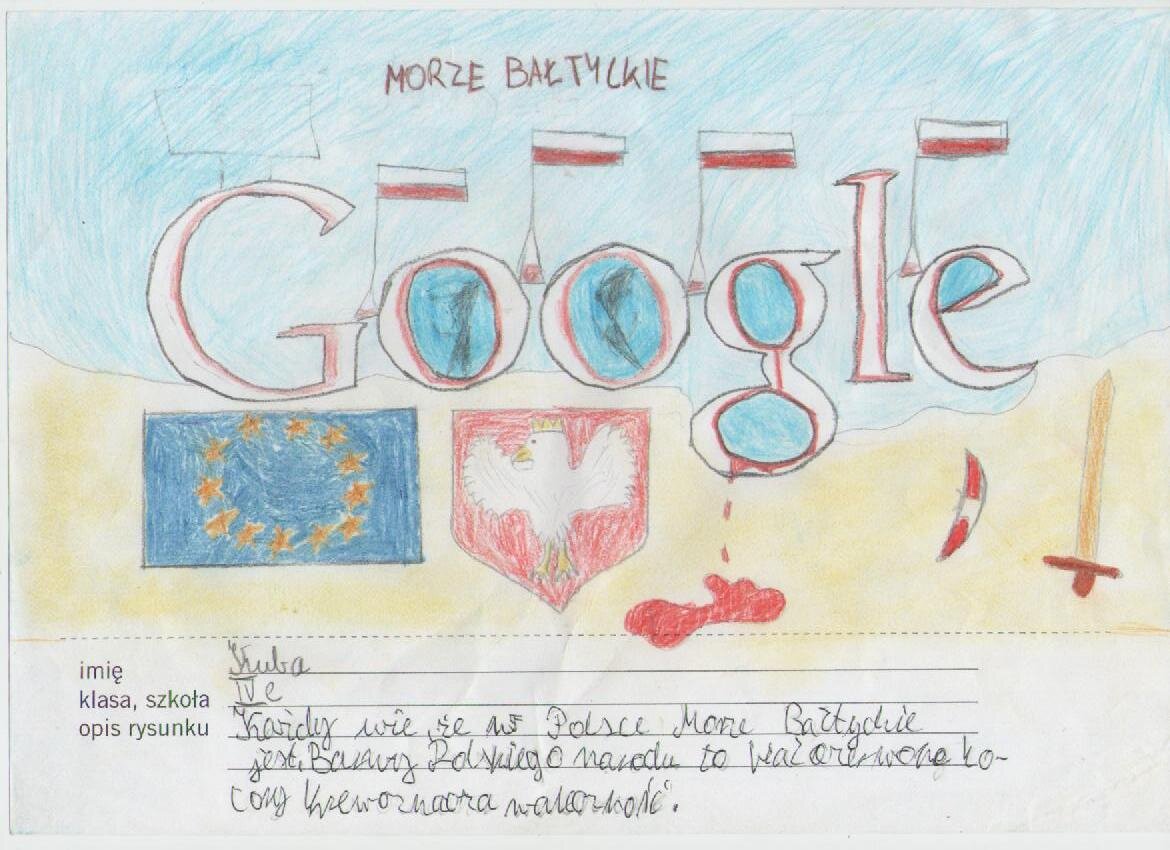 MORZE BAŁTYCKIE
Google
imię Kuba
klasa, szkoła IV e
opis rysunku Każdy wie, że w Polsce Morze Bałtyckie
jest. Barwy Polskiego narodu to czerwone ko-
lory krew oznacza waleczność.